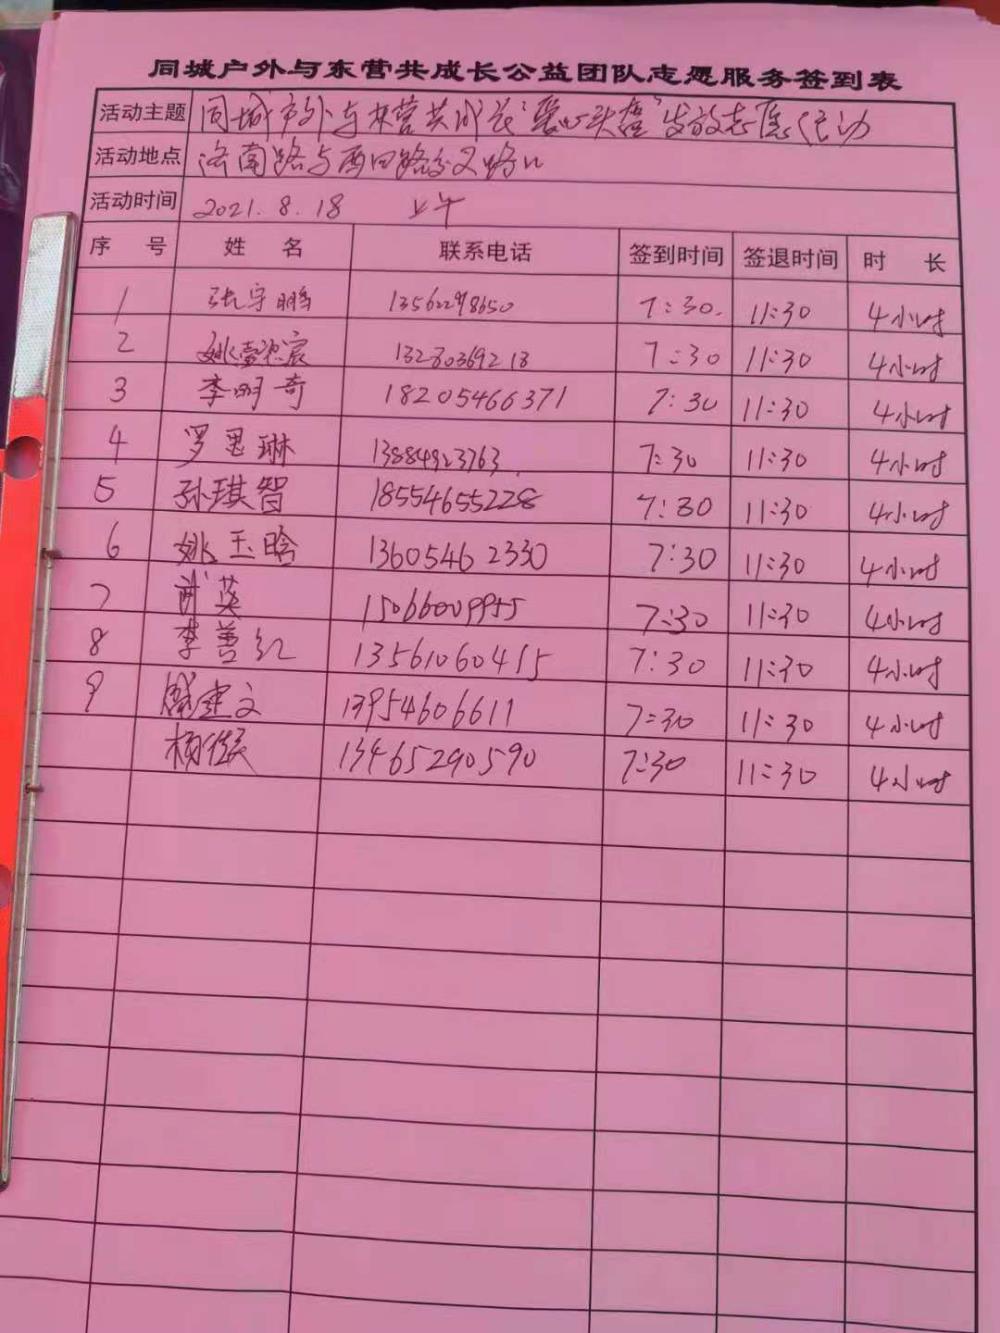 同城户外与东营共成长公益团队志愿服务签到表
活动主题 同城户外与东营共成长"爱心头盔"发放志愿活动
活动地点 济南路与西四路交叉路口
活动时间 2021.8.18 上午
序号 姓名 联系电话 签到时间 签退时间 时长
1 张宇鹏 13562298650 7:30. 11:30 4小时
2 13280369213 7:30 11:30 4小时
3 李明奇 18205466371 7:30 11:30 4小时
4 罗思琳 13884923763 7:30 11:30 4小时
5 孙琪智 18554655228 7:30 11:30 4小时
6 姚玉晗 13605462330 7:30 11:30 4小时
7 武英 15066009955 7:30 11:30 4小时
8 李善红 13561060415 7:30 11:30 4小时
9 建文 13954606611 7:30 11:30 4小时
13465290590 7:30 11:30 4小时